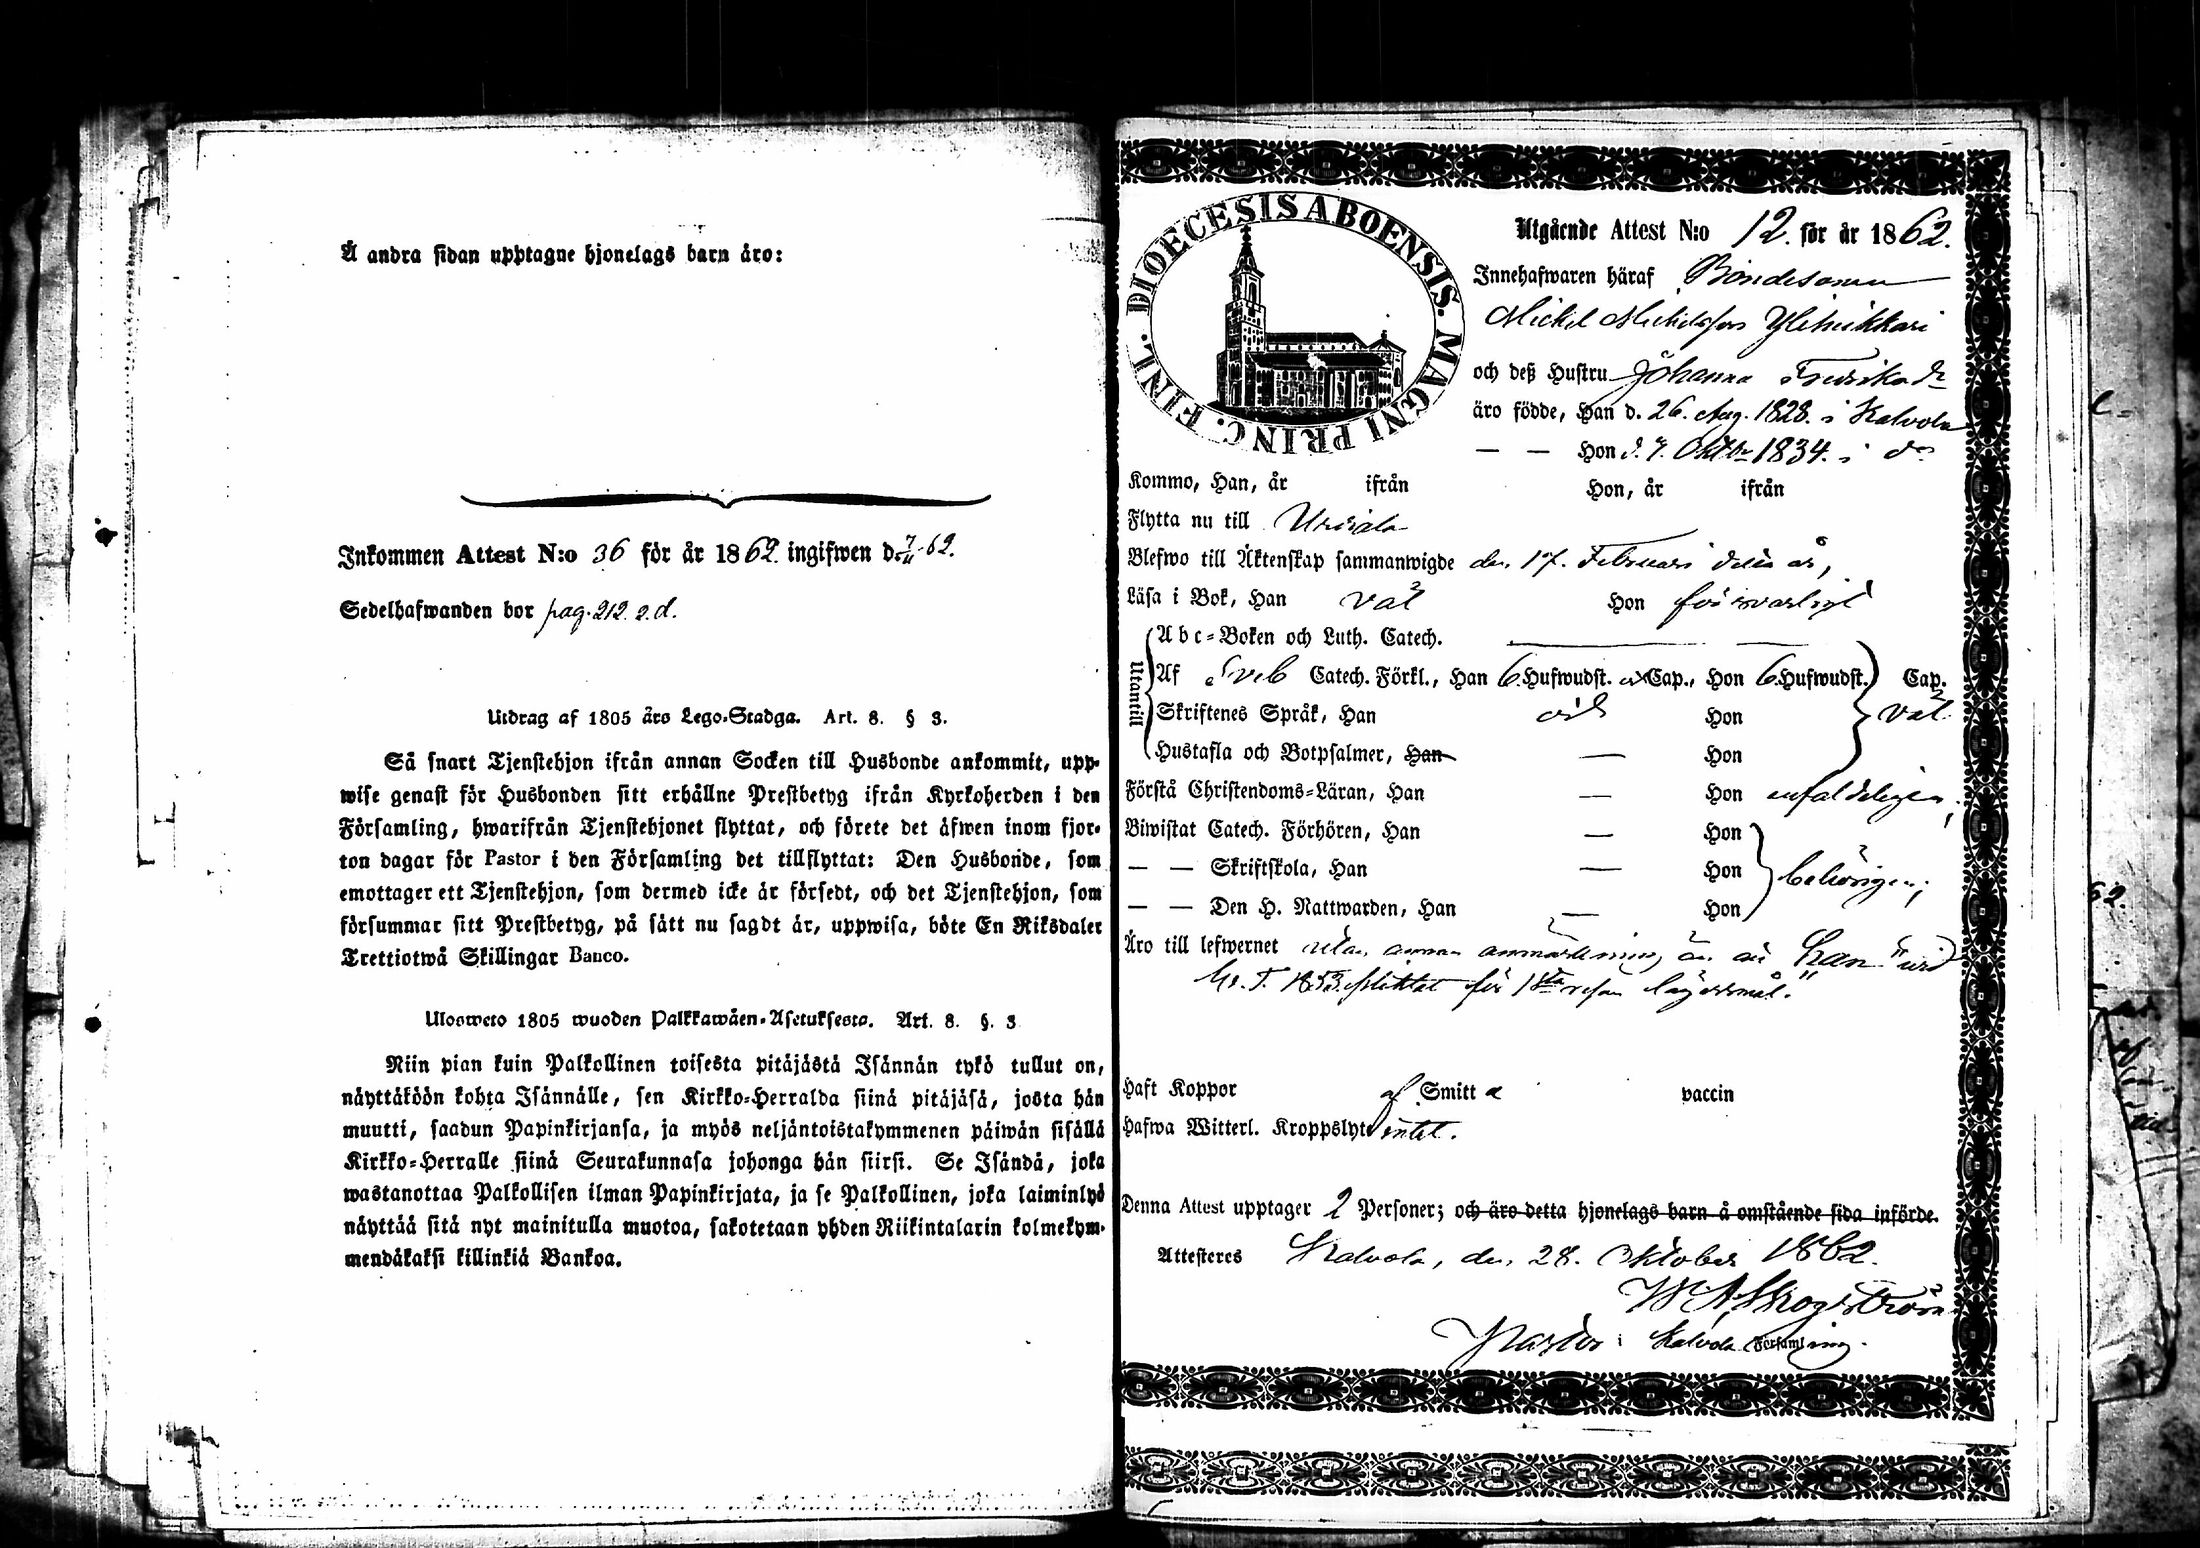 Å andra sidan upptagne hjonelags barn äro:
Inkommen Attest N:o 36 för år 1862. ingifwen d. 7/11 62.
Sedelhafwanden bor pag. 212. s.d.
Utdrag af 1805 års Lego-Stadga. Art. 8. § 3.
Så snart Tjenstehjon ifrån annan Socken till Husbonde ankommit, upp-
wise genast för Husbonden sitt erhållne Prestbetyg ifrån Kyrkoherden i den
Församling, hwarifrån Tjenstehjonet flyttat, och förete det äfwen inom fjor-
ton dagar för Pastor i den Församling det tillflyttat: Den Husbonde, som
emottager ett Tjenstehjon, som dermed icke är försedt, och det Tjenstehjon, som
försummar sitt Prestbetyg, på sätt nu sagdt är, uppwisa, böte En Riksdaler
Trettiotwå Skillingar Banco.
Ulosweto 1805 wuoden Palkkawäen-Asetuksesta. Art. 8. §. 3
Niin pian kuin Palkollinen toisesta pitäjästä Isännän tykö tullut on,
näyttäköön kohta Isännälle, sen Kirkko-Herralda siinä pitäjäsä, josta hän
muutti, saadun Papinkirjansa, ja myös neljäntoistakymmenen päiwän sisällä
Kirkko-Herralle siinä Seurakunnasa johonga hän siirsi. Se Isändä, joka
wastanottaa Palkollisen ilman Papinkirjata, ja se Palkollinen, joka laiminlyö
näyttää sitä nyt mainitulla muotoa, sakotetaan yhden Riikintalarin kolmekym-
mendäkaksi killinkiä Bankoa.
DIOECESIS ABOENSIS. MAGNI PRINC. FINL.
Utgående Attest N:o 12. för år 1862.
Innehafwaren häraf Bondesonen
Mickel Michelsson Ylihukkari
och deß Hustru Johanna Fredriksdr
äro födde, Han d. 26. Aug. 1828. i Kalvola
— — Hon d. 7. Oktbr 1834. i do
Kommo, Han, år ifrån Hon, år ifrån
Flytta nu till Urdiala
Blefwo till Äktenskap sammanwigde den 17. Februari detta år,
Läsa i Bok, Han väl Hon försvarligt
Utantill
Abc-Boken och Luth. Catech. — —
Af Sveb Catech. Förkl., Han 6. Hufwudst. Cap., Hon 6. Hufwudst. Cap.
Skriftenes Språk, Han Hon väl
Hustafla och Botpsalmer, Han — Hon
Förstå Christendoms-Läran, Han — Hon enfaldeligen,
Biwistat Catech. Förhören, Han — Hon
— — Skriftskola, Han — Hon behörigen;
— — Den H. Nattwarden, Han — Hon
Äro till lefwernet utan annan anmärkning än att han "vid
H. T. 1853 pliktat för 1sta resan lägersmål."
Haft Koppor af Smitta vaccin
Hafwa Witterl. Kroppslyte intet.
Denna Attest upptager 2 Personer; och äro detta hjonelags barn å omstående sida införde.
Attesteres Kalvola, den 28. Oktober 1862.
W A Skogström
Pastor i Kalvola Församling.